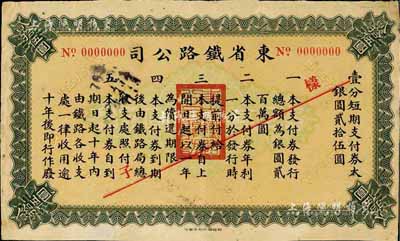 上海泓盛
東省鐵路公司
No 0000000
No 0000000
壹分短期支付券大
銀圓貳拾伍圓
樣
一 本支付券發行
總額為銀圓貳
百萬圓
二 本支付券年利
一分於發行時
提前付給
三 本支付券自上
開日起以一年
為償還期限
四 本支付券到期
後由鐵路局總
收支處照付
五 本支付券自到
期日起十年內
由鐵路各收支
處一律收用逾
十年後即行作廢
上海泓盛